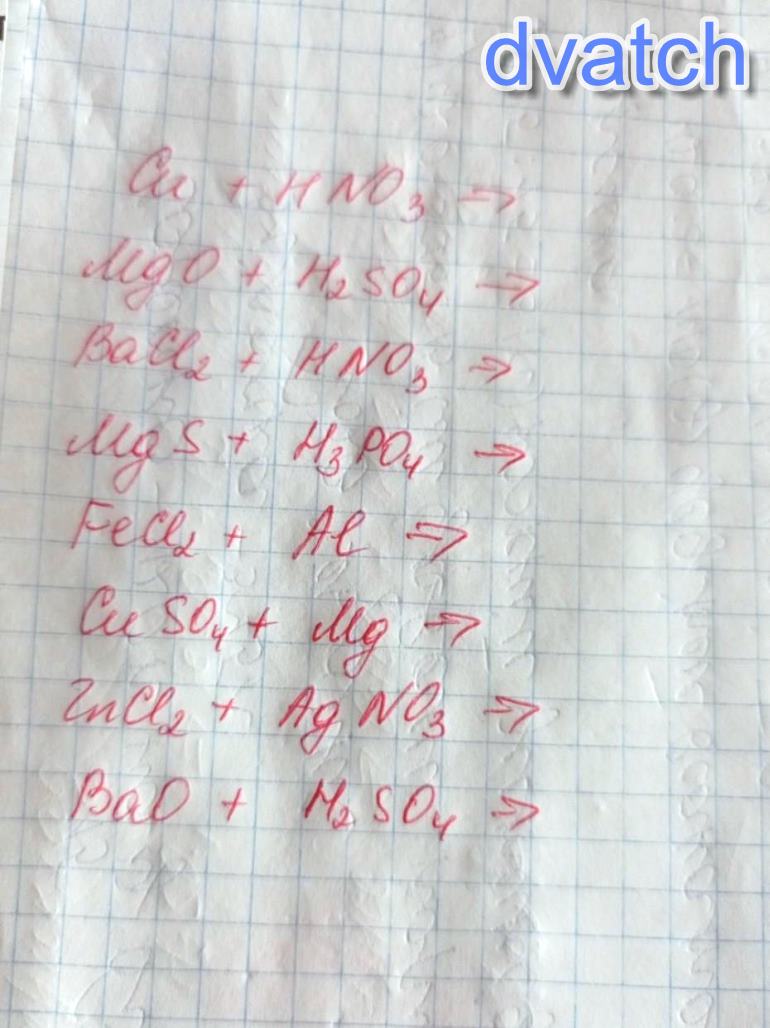 dvatch
Cu + HNO₃ →
MgO + H₂SO₄ →
BaCl₂ + HNO₃ →
MgS + H₃PO₄ →
FeCl₂ + Al →
CuSO₄ + Mg →
ZnCl₂ + AgNO₃ →
BaO + H₂SO₄ →